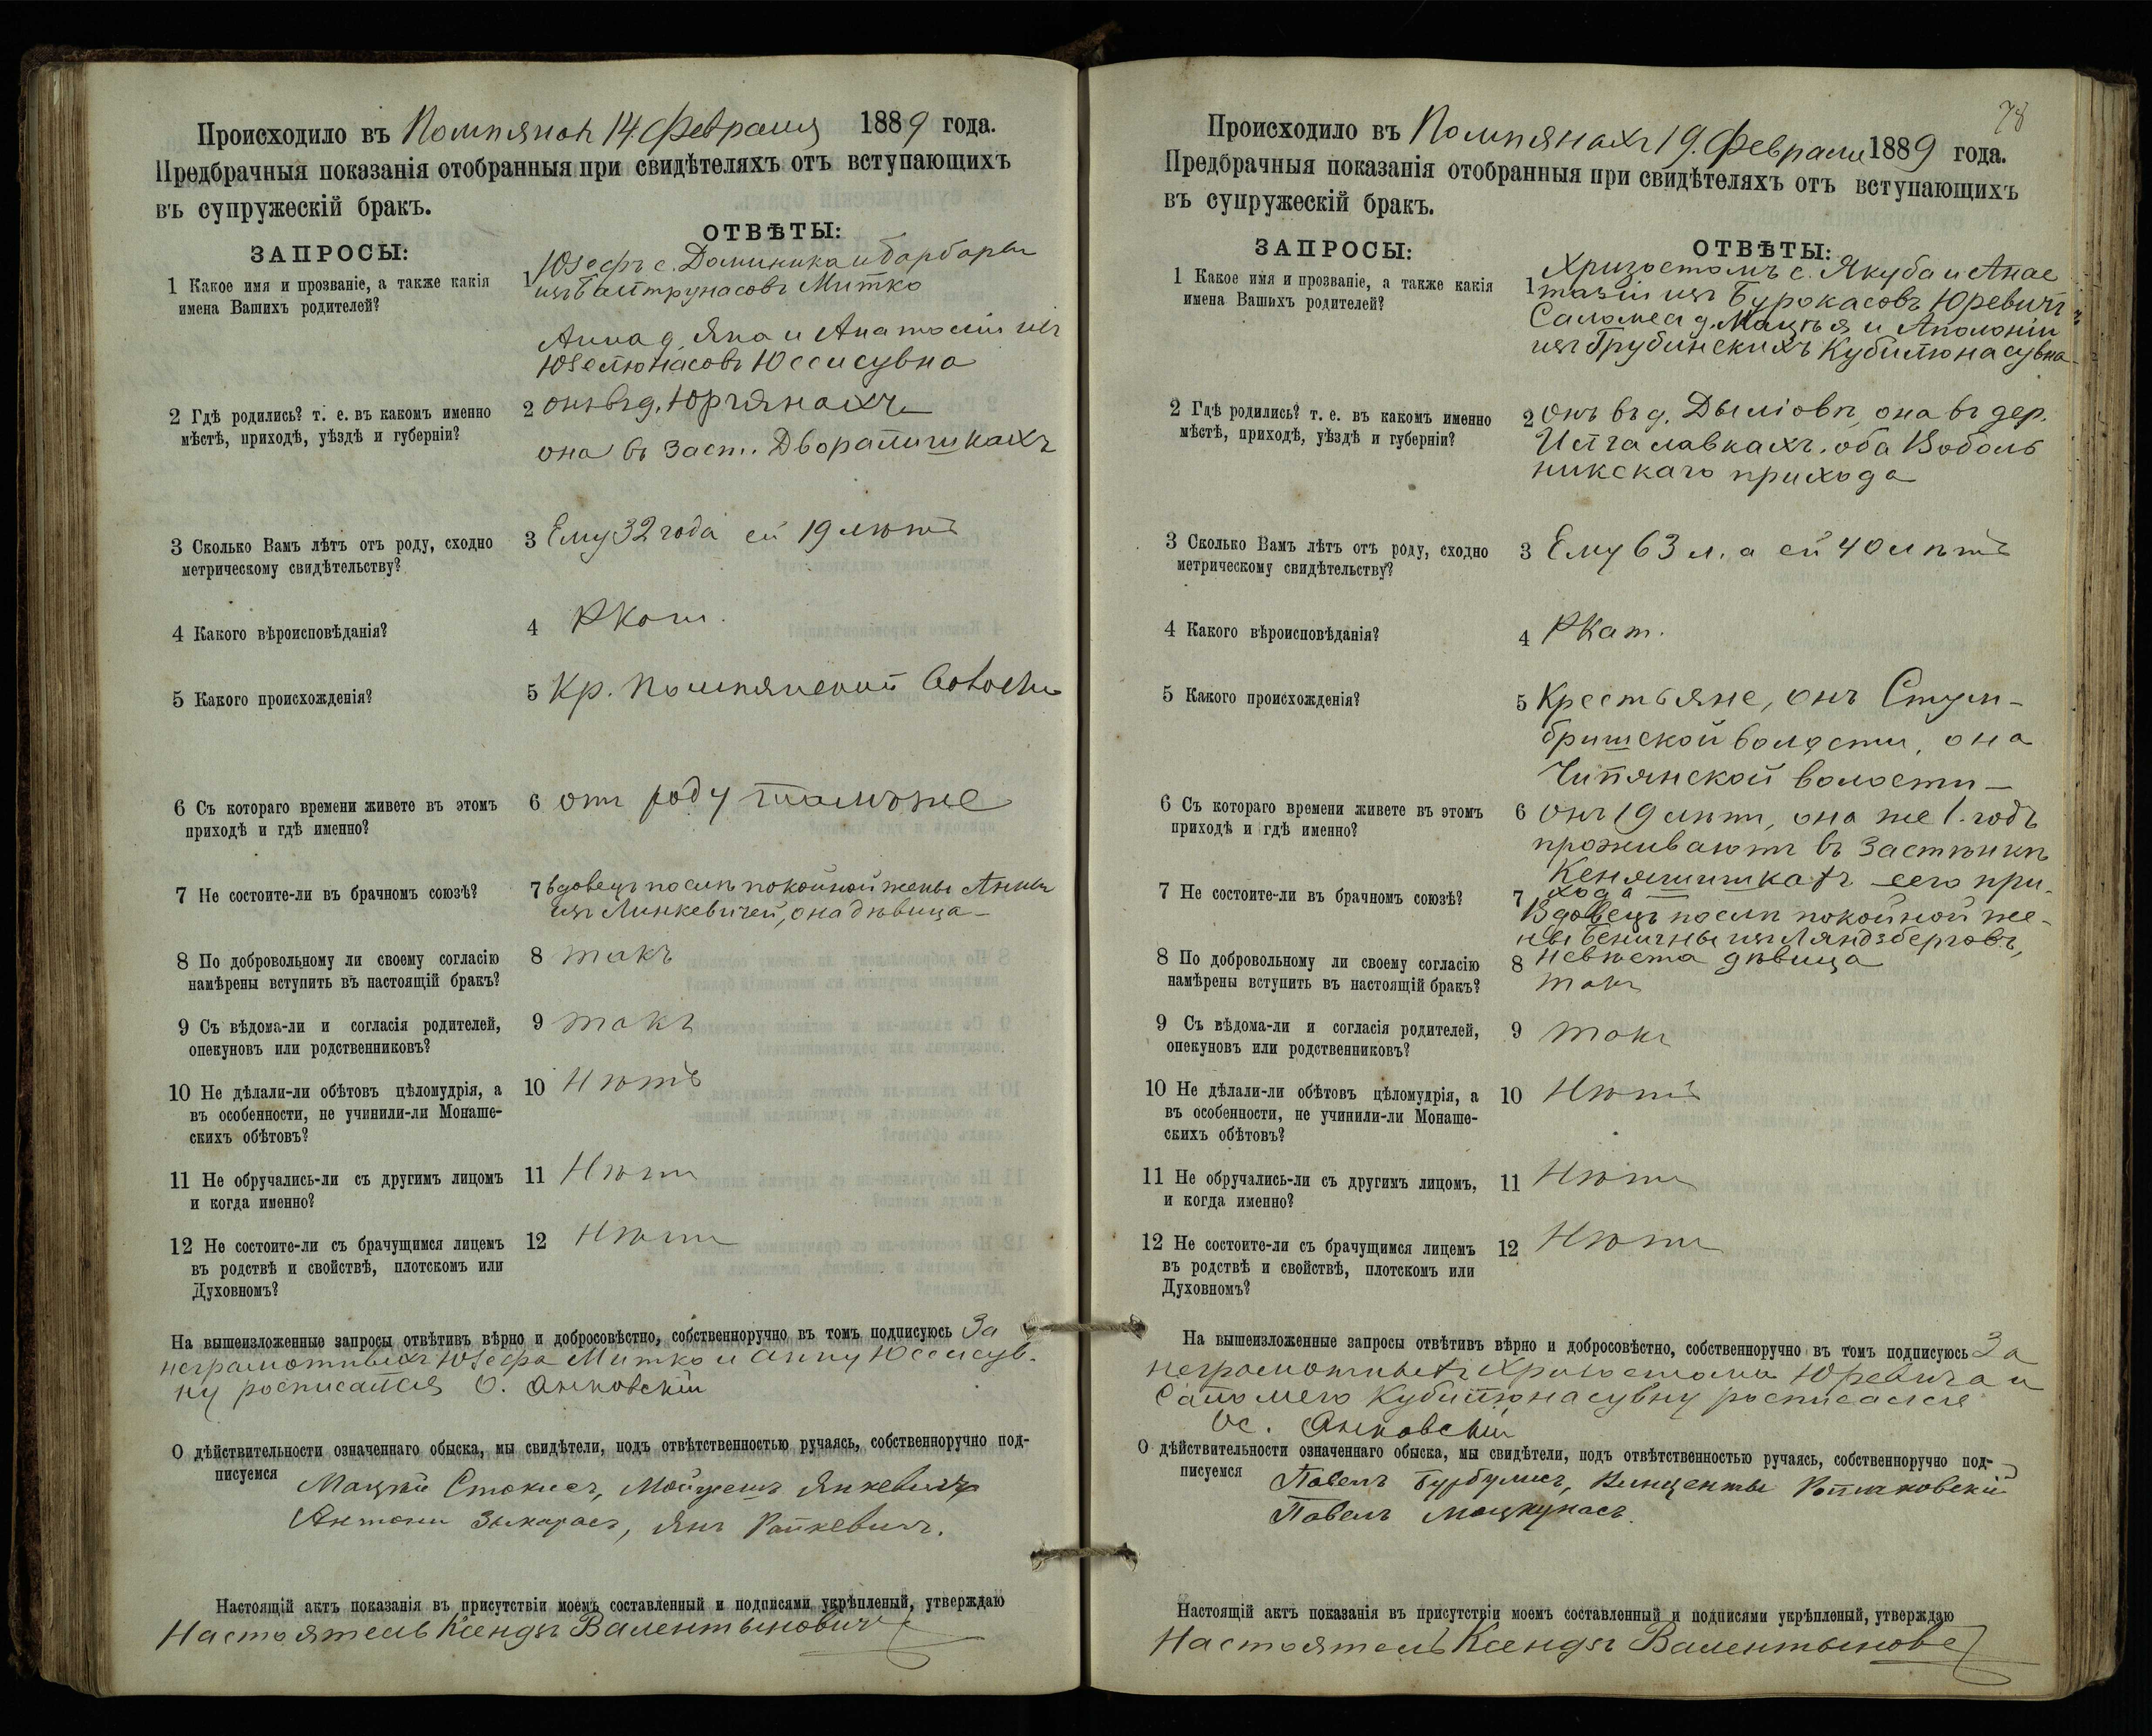 Происходило въ Помпянахъ 14. Февраля 1889 года.
Предбрачныя показанія отобранныя при свидѣтеляхъ отъ вступающихъ
въ супружескій бракъ.
ЗАПРОСЫ:
ОТВѢТЫ:
1 Какое имя и прозваніе, а также какія
имена Вашихъ родителей?
1 Юзефъ с. Доминика и Барбары
изъ Митко
Анна д. Яна и
Юссисувна
2 Гдѣ родились? т. е. въ какомъ именно
мѣстѣ, приходѣ, уѣздѣ и губерніи?
2 онъ въ д. Юргянахъ
она въ заст.
3 Сколько Вамъ лѣтъ отъ роду, сходно
метрическому свидѣтельству?
3 Ему 32 года ей 19 лѣтъ
4 Какого вѣроисповѣданія?
4 РКат.
5 Какого происхожденія?
5 Кр. Помпянской волости
6 Съ котораго времени живете въ этомъ
приходѣ и гдѣ именно?
6 отъ роду тамъ же
7 Не состоите-ли въ брачномъ союзѣ?
7 вдовецъ послѣ покойной жены Анны
изъ Линкевичей, она дѣвица
8 По добровольному ли своему согласію
намѣрены вступить въ настоящій бракъ?
8 такъ
9 Съ вѣдома-ли и согласія родителей,
опекуновъ или родственниковъ?
9 такъ
10 Не дѣлали-ли обѣтовъ цѣломудрія, а
въ особенности, не учинили-ли Монаше-
скихъ обѣтовъ?
10 Нѣтъ
11 Не обручались-ли съ другимъ лицомъ
и когда именно?
11 Нѣтъ
12 Не состоите-ли съ брачущимся лицемъ
въ родствѣ и свойствѣ, плотскомъ или
Духовномъ?
12 Нѣтъ
На вышеизложенные запросы отвѣтивъ вѣрно и добросовѣстно, собственноручно въ томъ подписуюсь За
неграмотныхъ Юзефа Митко и Анну Юссисув-
ну росписался О. Янковскій
О дѣйствительности означеннаго обыска, мы свидѣтели, подъ отвѣтственностью ручаясь, собственноручно под-
писуемся
Мацѣй Стокисъ, Янкевичъ
Антони Янъ Раткевичъ.
Настоящій актъ показанія въ присутствіи моемъ составленный и подписями укрѣпленый, утверждаю
Настоятель Ксендзъ Валентыновичъ
78
Происходило въ Помпянахъ 19. Февраля 1889 года.
Предбрачныя показанія отобранныя при свидѣтеляхъ отъ вступающихъ
въ супружескій бракъ.
ЗАПРОСЫ:
ОТВѢТЫ:
1 Какое имя и прозваніе, а также какія
имена Вашихъ родителей?
1 Хризостомъ с. Якуба и Анас
тазіи изъ Бурокасовъ Юревичъ
Саломея д. Мацѣя и Аполоніи
изъ Грубинскихъ Кубилюнасувна
2 Гдѣ родились? т. е. въ какомъ именно
мѣстѣ, приходѣ, уѣздѣ и губерніи?
2 онъ въ д. она въ дер.
оба Воболь
никскаго прихода
3 Сколько Вамъ лѣтъ отъ роду, сходно
метрическому свидѣтельству?
3 Ему 63 л. а ей 40 лѣтъ
4 Какого вѣроисповѣданія?
4 РКат.
5 Какого происхожденія?
5 Крестьяне, онъ Стум-
бришской волости, она
Чипянской волости
6 Съ котораго времени живете въ этомъ
приходѣ и гдѣ именно?
6 онъ 19 лѣтъ, она же 1. годъ
проживаютъ въ застѣнкѣ
сего при-
хода
7 Не состоите-ли въ брачномъ союзѣ?
7 Вдовецъ послѣ покойной же-
ны изъ Ляндзберговъ,
невѣста дѣвица
8 По добровольному ли своему согласію
намѣрены вступить въ настоящій бракъ?
8 такъ
9 Съ вѣдома-ли и согласія родителей,
опекуновъ или родственниковъ?
9 такъ
10 Не дѣлали-ли обѣтовъ цѣломудрія, а
въ особенности, не учинили-ли Монаше-
скихъ обѣтовъ?
10 Нѣтъ
11 Не обручались-ли съ другимъ лицомъ,
и когда именно?
11 Нѣтъ
12 Не состоите-ли съ брачущимся лицемъ
въ родствѣ и свойствѣ, плотскомъ или
Духовномъ?
12 Нѣтъ
На вышеизложенные запросы отвѣтивъ вѣрно и добросовѣстно, собственноручно въ томъ подписуюсь За
неграмотныхъ Хризостома Юревича и
Саломею Кубилюнасувну росписался
Ос. Янковскій
О дѣйствительности означеннаго обыска, мы свидѣтели, подъ отвѣтственностью ручаясь, собственноручно под-
писуемся
Павелъ Бурбулисъ, Винценты
Павелъ Мацкунасъ.
Настоящій актъ показанія въ присутствіи моемъ составленный и подписями укрѣпленый, утверждаю
Настоятель Ксендзъ Валентынове